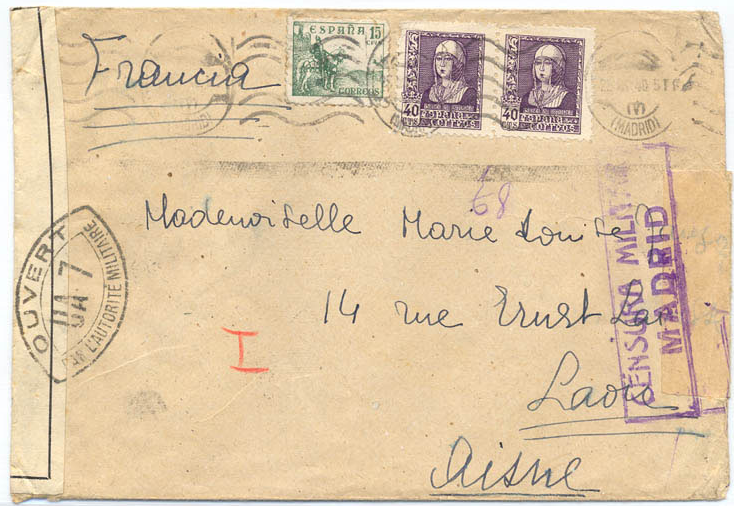 Francia
ESPAÑA 15
CTS
CORREOS
40 CTS
ESPAÑA
CORREOS
40 CTS
ESPAÑA
CORREOS
40 5T
(V)
(MADRID)
68
Mademoiselle Marie Louise
14 rue Ernst
Aisne
I
OUVERT
UA 7
PAR L'AUTORITÉ MILITAIRE
CENSURA MILITAR
MADRID